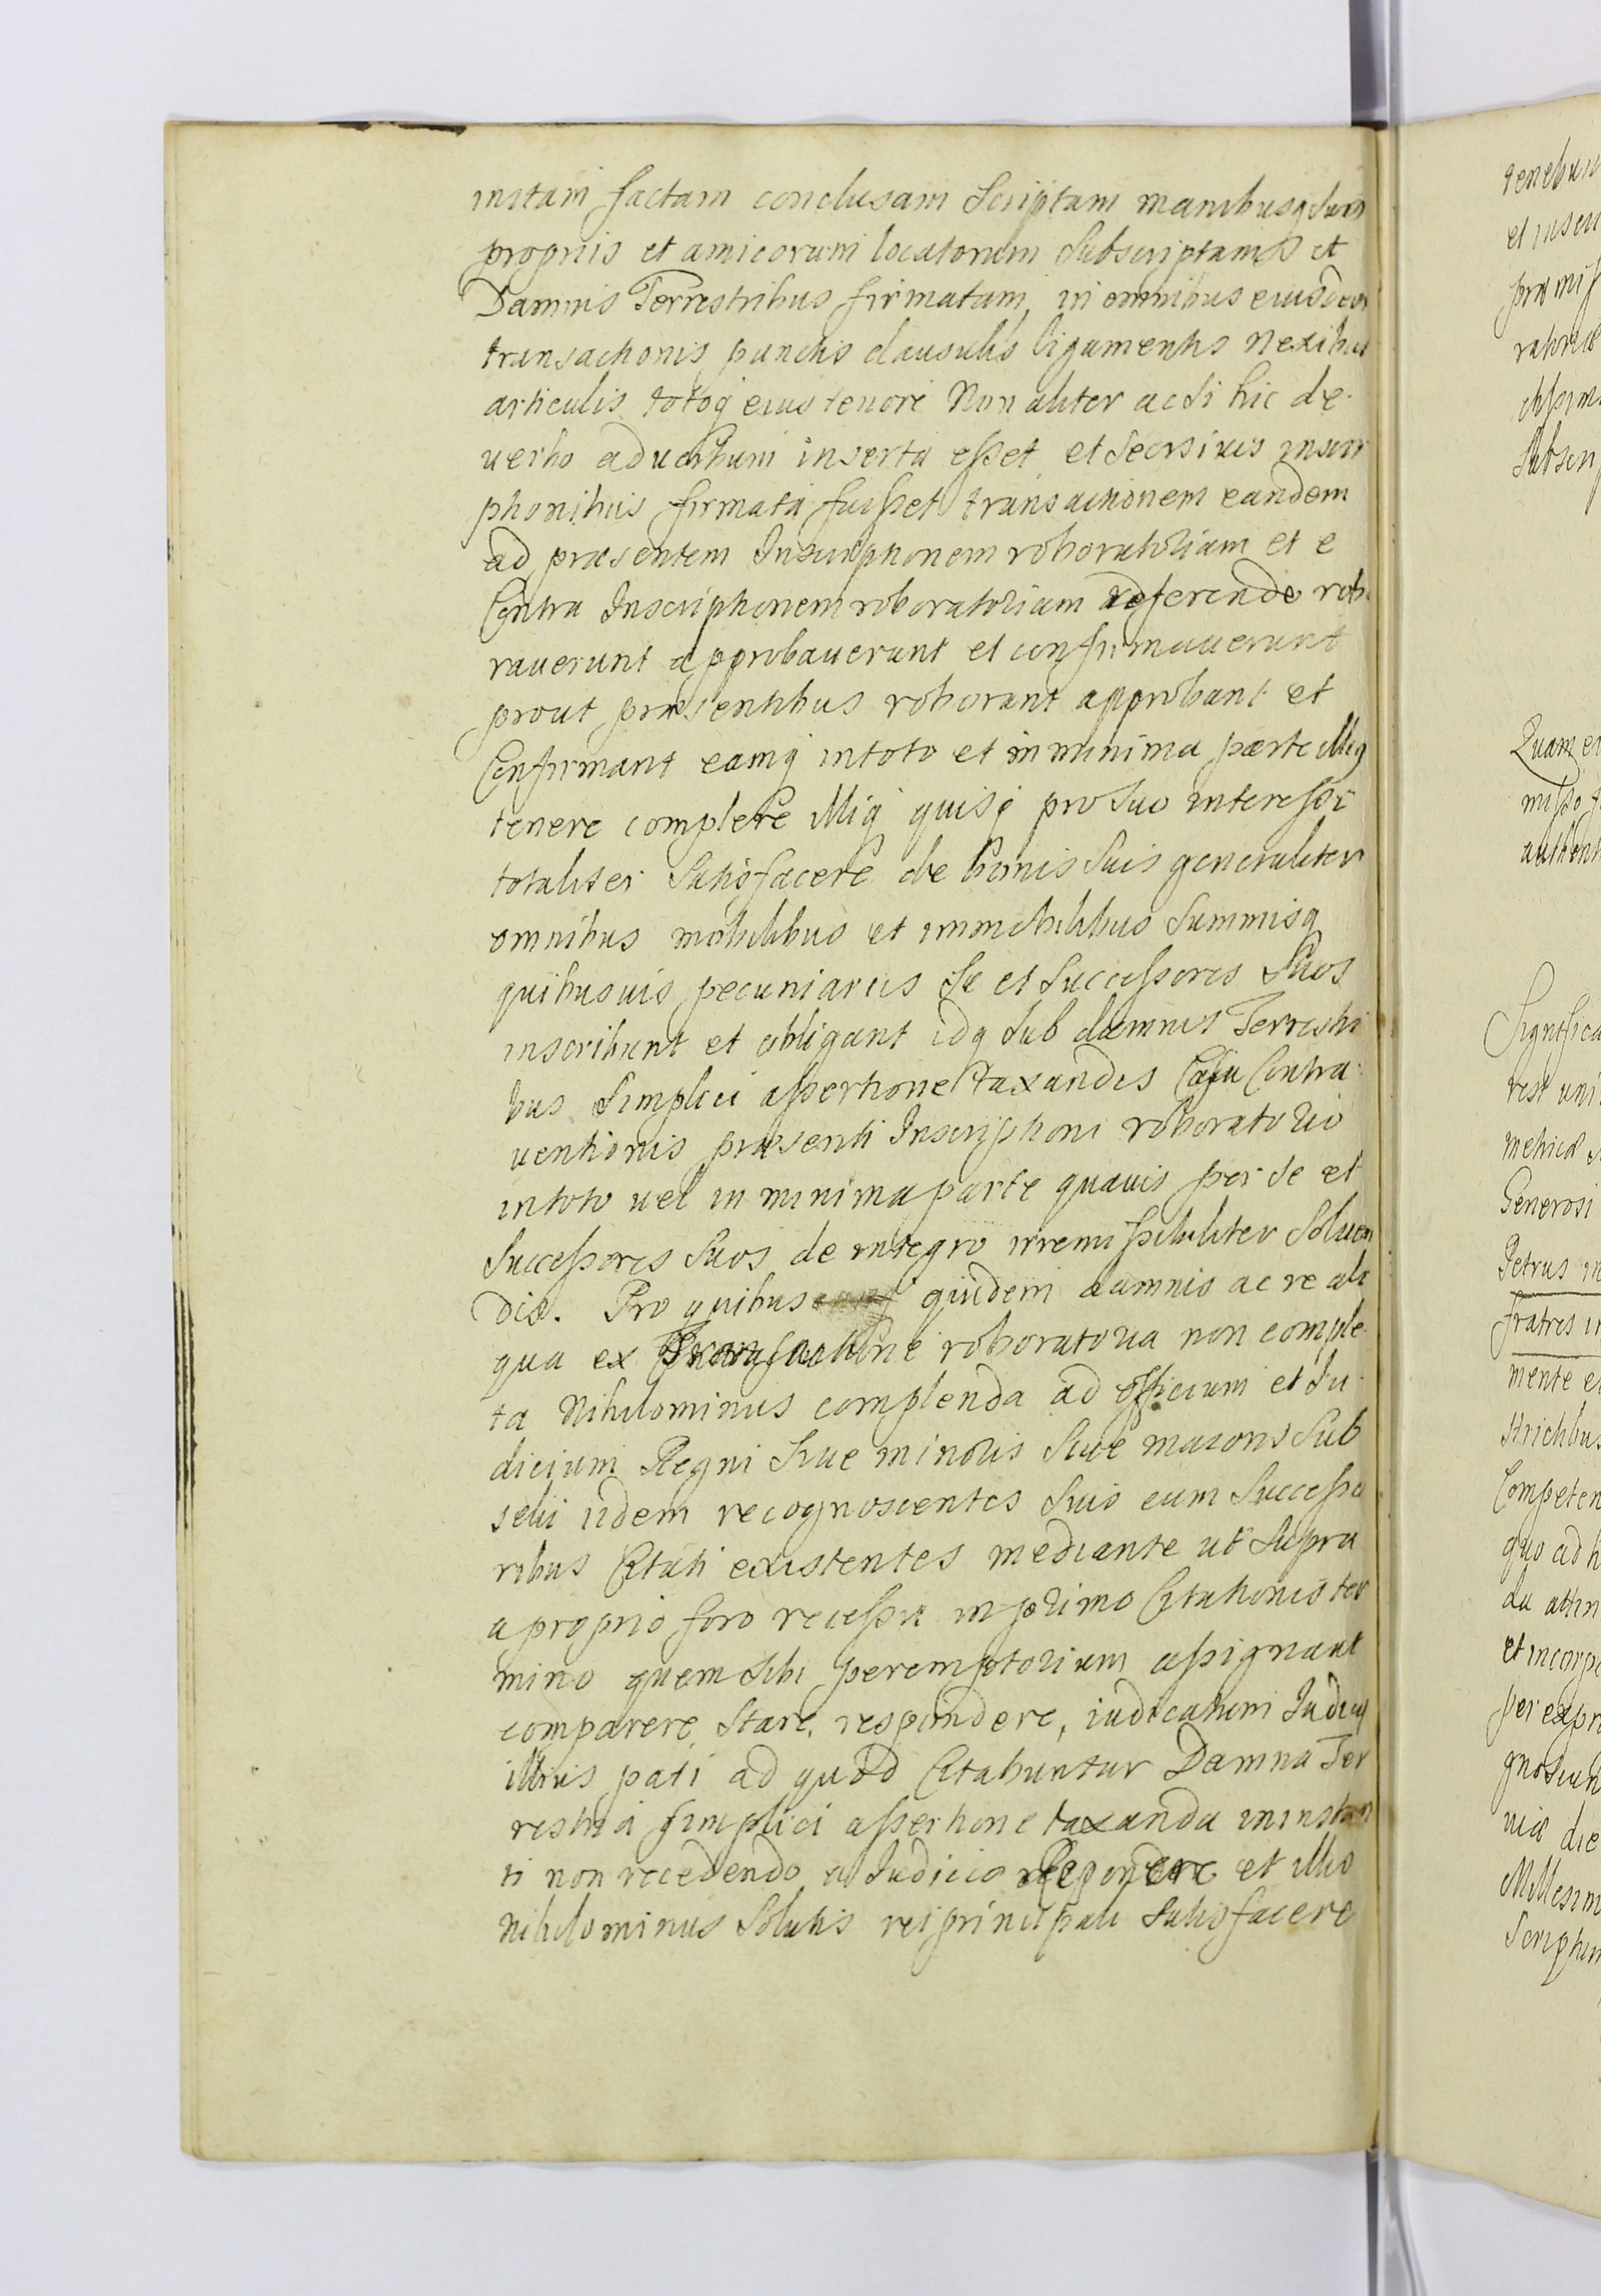 initam factam conclusam Scriptam manibusq suis
propriis et amicorum locatorum Subscriptam et
Damnis Terrestribus firmatam, in omnibus eiusdem
transactionis punctis clausulis ligamentis nexibus
articulis totoq eius tenore Non aliter ac si hic de
uerbo ad uerbum inserta esset et decisiuis inscri
ptionibus firmata fuisset transactionem eandem
ad præsentem Inscriptionem roboratoriam et e
Contra Inscriptionem roboratoriam referendo robo
rauerunt approbauerunt et confirmauerunt
prout præsentibus roborant approbant et
Confirmant eamq in toto et in minima parte illiq
tenere complere illiq quisq pro suo interesse
totaliter Satisfacere de bonis Suis generaliter
omnibus mobilibus et immobilibus Summisq
quibusuis pecuniariis Se et Successores Suos
inscribunt et obligant idq Sub damnis Terrestri
bus Simplici assertione taxandis Casu Contra
uentionis præsenti Inscriptioni roboratorio
in toto uel in minima parte quauis per Se et
Successores Suos de integro irremissibiliter Soluen
dis. Pro quibus quidem damnis ac re ali
qua ex roboratoria non comple
ta Nihilominus complenda ad officium et Iu
dicium Regni Siue minoris Siue maioris Sub
selii iidem recognoscentes Suis cum Successo
ribus Citati existentes mediante ut Supra
a proprio foro recessu in primo Citationis ter
mino quem Sibi peremptorium assignant
comparere, Stare, respondere, iudicatum Iudicii
illius pati ad quod Citabuntur Damna Ter
restria Simplici assertione taxanda in instan
ti non recedendo a Iudicio reponere et illis
Nihilominus Solutis rei principali Satisfacere
tenebun
et inscri
ratoriæ
Subscri
Quam
misso
authent
Significa
rest uni
Generosi
Petrus in
fratres in
mente et
Competen
quo ad h
da attin
et incorpo
per expr
die
Millesim
Scriptum